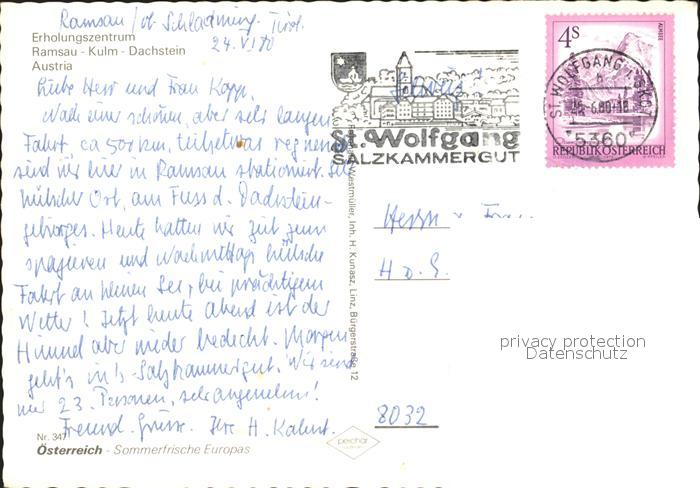 Ramsau / ob Schladming. Tirol.
24. VI 80
Erholungszentrum
Ramsau - Kulm - Dachstein
Austria
Liebe Herr und Frau Kopp,
Nach einer schönen, aber sehr langen
Fahrt, ca 500 km, teils etwas regnerisch
sind wir hier in Ramsau stationiert. Ein
hübscher Ort, am Fuss d. Dachstein-
gebirges. Heute hatten wir Zeit zum
spazieren und Nachmittags hübsche
Fahrt an kleinen See, bei prächtigem
Wetter! Jetzt heute Abend ist der
Himmel aber wieder bedeckt. Morgen
geht's in's Salzkammergut. Wir sind
nur 23 Personen, sehr angenehm!
Freundl. Grüsse. Ihre H.
Nr. 347
Österreich - Sommerfrische Europas
Westmüller, Inh. H. Kunasz, Linz, Bürgerstraße 12
peichär
St. Wolfgang
SALZKAMMERGUT
4S
ALMSEE
REPUBLIK ÖSTERREICH
ST. WOLFGANG I. SKGT.
b
25.-6.80-18
5360
Schweiz
Herrn u Frau
H. D. G.
8032
privacy protection
Datenschutz